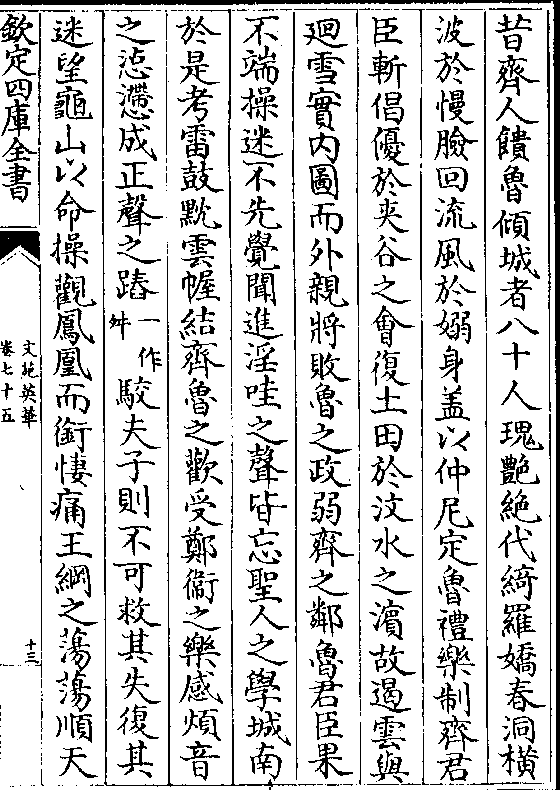 昔齊人饋魯傾城者八十人瑰艷絶代綺羅嬌春洞橫
波於慢臉回流風於嫋身盖以仲尼定魯禮樂制齊君
臣斬倡優於夾谷之會復土田於汶水之濆故遏雲與
廻雪實内圖而外親將敗魯之政弱齊之鄰魯君臣果
不端操迷不先覺聞進淫哇之聲皆忘聖人之學城南
於是考雷鼓黕雲幄結齊魯之歡受鄭衞之樂感煩音
之惉懘成正聲之踳一作舛駮夫子則不可救其失復其
迷望龜山以命操觀鳳凰而銜悽痛王綱之蕩蕩順天
欽定四庫全書
文苑英華
卷七十五
十三